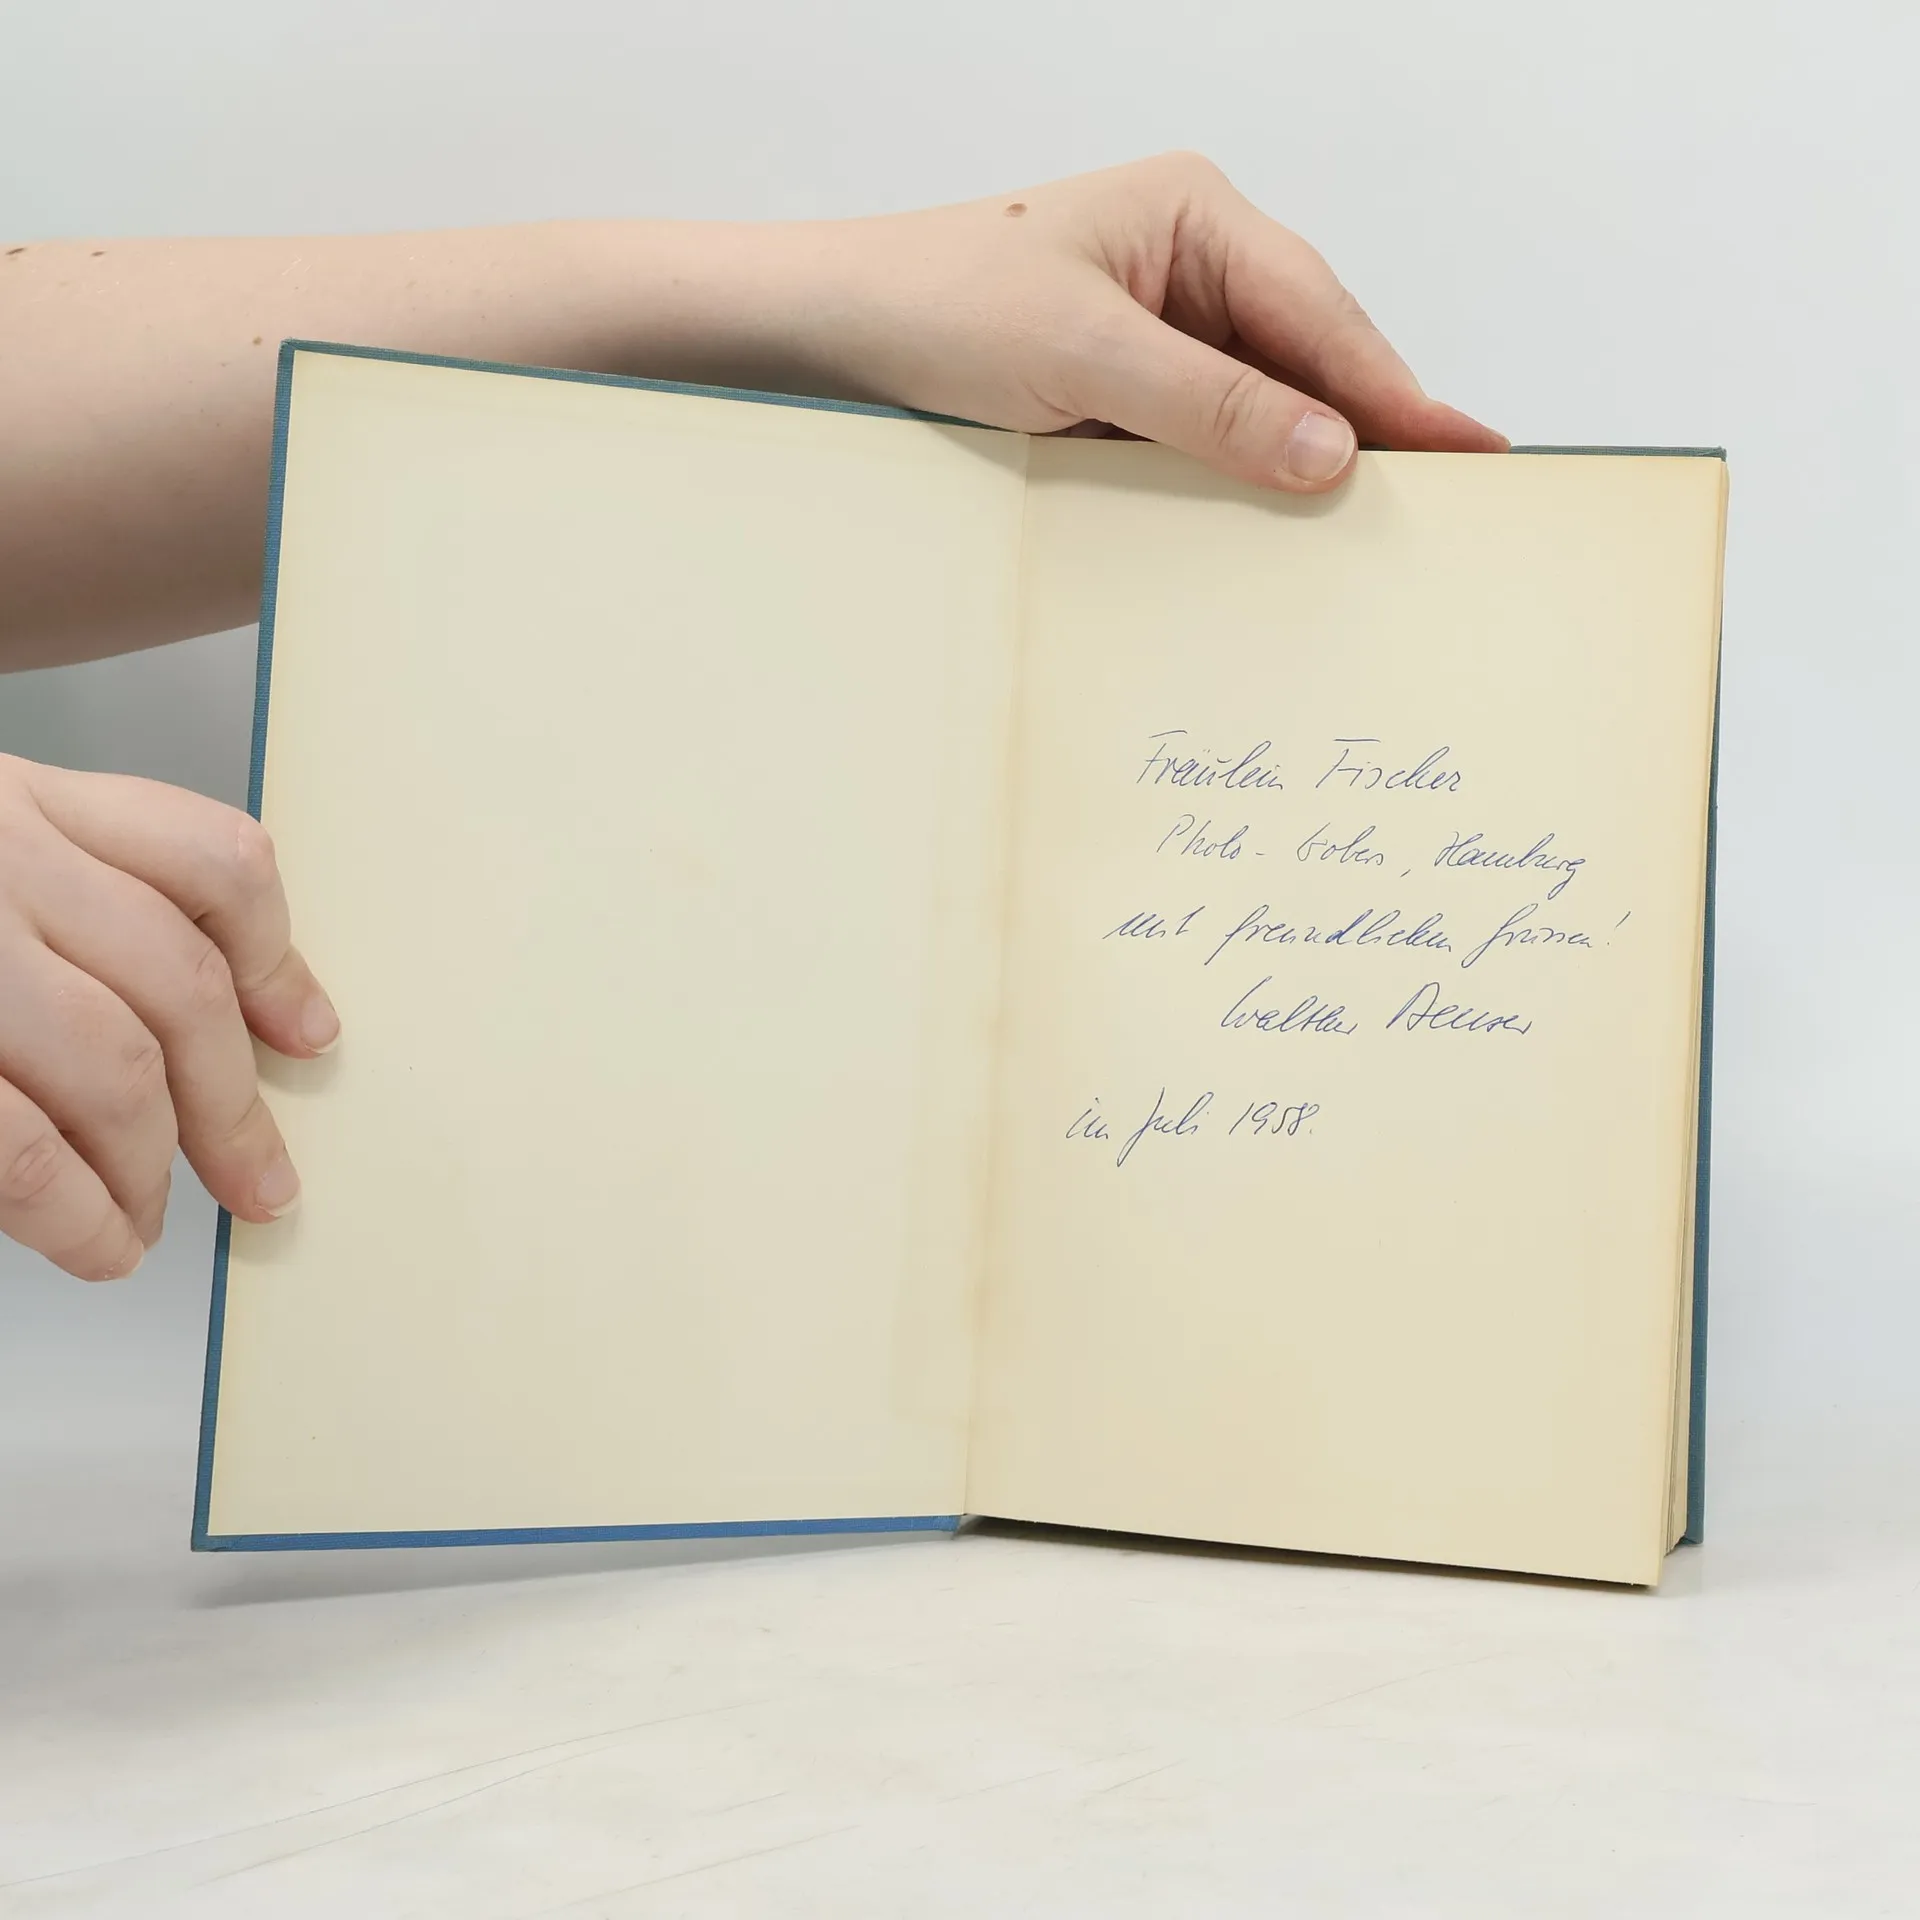 Fräulein Fischer
Photo-Wobers, Hamburg
mit freundlichen Grüssen!
Walther Benser
im Juli 1958.